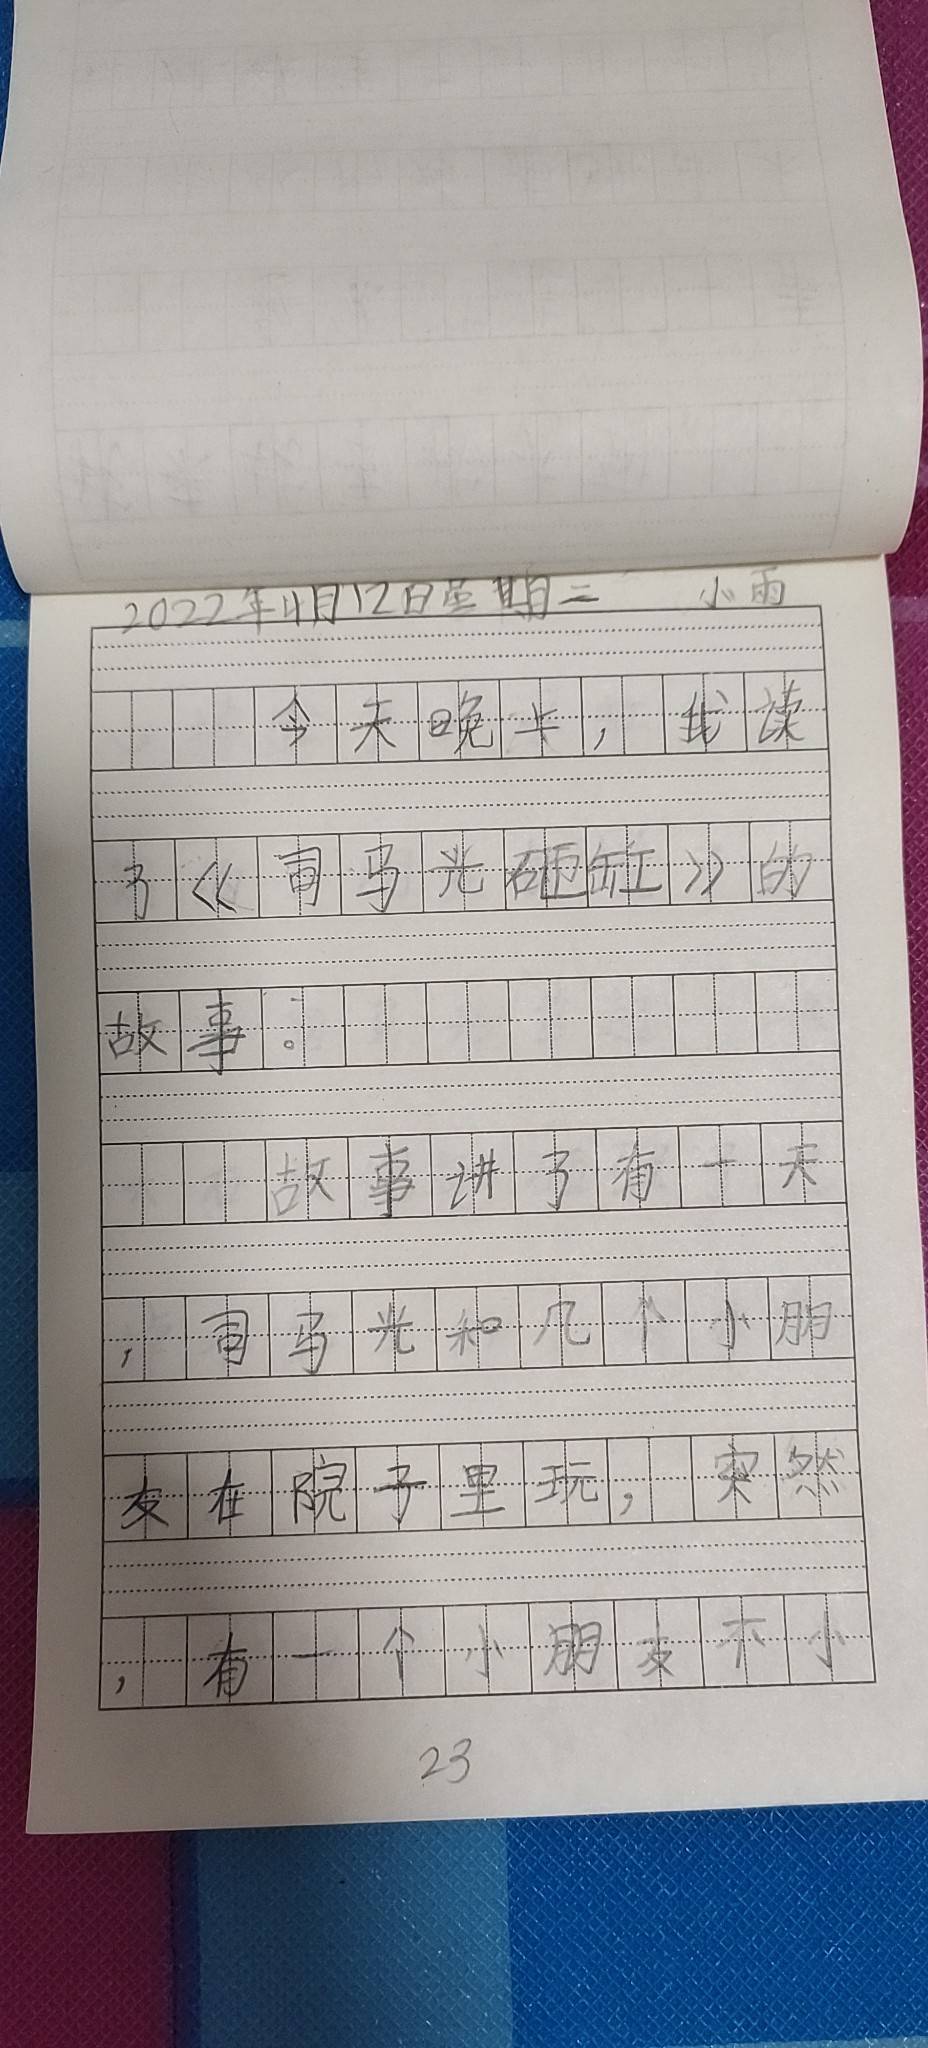 2022年4月12日星期二 小雨
今天晚上,我读
了《司马光砸缸》的
故事。
故事讲了有一天
,司马光和几个小朋
友在院子里玩,突然
,有一个小朋友不小
23